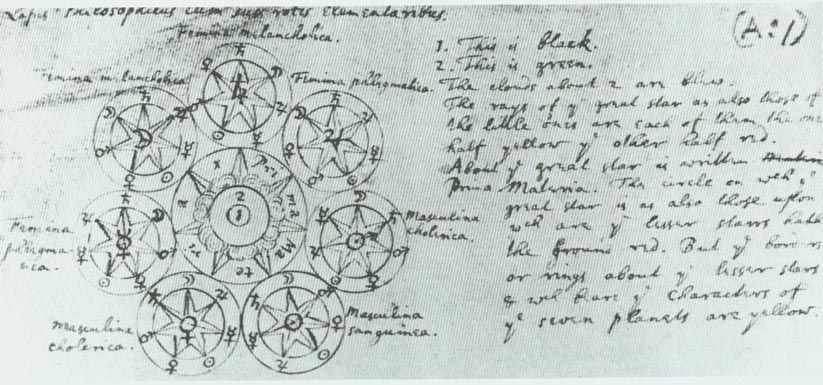 Lapis Philosophicus cum suis rotis elementaribus.
(A:1)
Femina melancholica.
Femina melancholica
Femina phlegmatica.
Femina
phlegma-
tica.
Masculina
cholerica.
masculina
cholerica.
Masculina
sanguinea.
Pri
ma
Ma
te
ri
a
x
2
1
1. This is black.
2. This is green.
The clouds about 2 are blew.
The rays of yᵉ great star as also those of
the little ones are each of them the one
half yellow yᵉ other half red.
About yᵉ great star is written
Prima Materia. The circle on wᶜʰ yᵉ
great star is as also those upon
wᶜʰ are yᵉ lesser starrs hath
the ground red. But yᵉ borders
or rings about yᵉ lesser stars
& wᶜʰ beare yᵉ characters of
yᵉ seven planets are yellow.